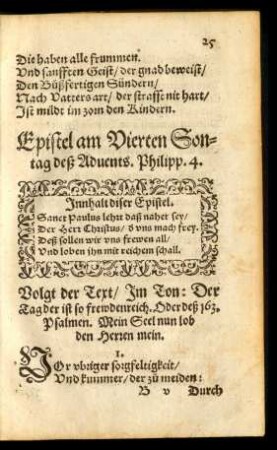 25
Die haben alle frummen.
Vnd sanfften Geist/ der gnad beweist/
Den Büßfertigen Sündern/
Nach Vatters art/ der strafft nit hart/
Ist mildt im zorn den Kindern.
Epistel am Vierten Son-
tag deß Aduents. Philipp. 4.
Innhalt diser Epistel.
Sanct Paulus lehrt daß naher sey/
Der Herr Christus/ d vns mach frey.
Deß sollen wir vns frewen all/
Vnd loben jhn mit reichem schall.
Volgt der Text/ Im Ton: Der
Tag der ist so frewdenreich. Oder deß 163.
Psalmen. Mein Seel nun lob
den Herren mein.
1.
Vor vbriger sorgfeltigkeit/
Vnd kummer/ der zu meiden:
B v Durch